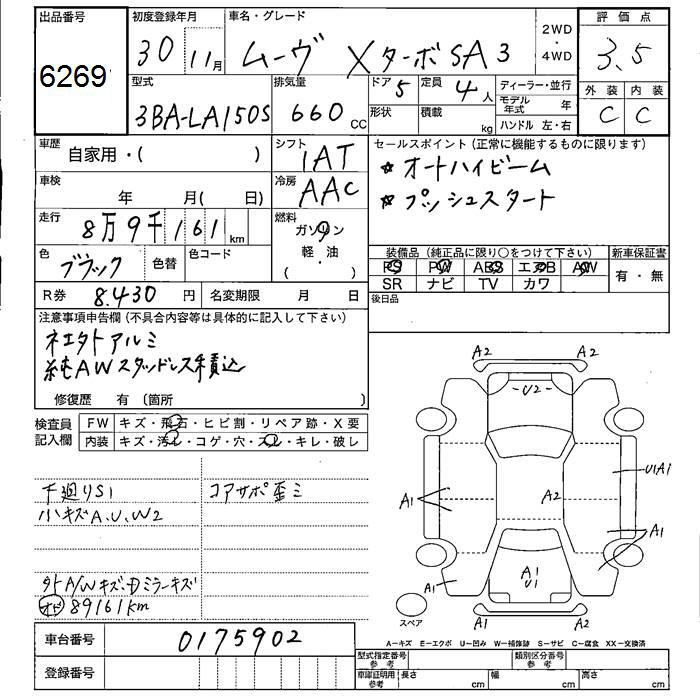 出品番号
6269
初度登録年月
30 11月
車名・グレード
ムーヴ Xターボ SA3
2WD
・
4WD
評価点
3.5
型式
3BA-LA150S
排気量
660 CC
ドア 5
定員 4人
形状
積載 kg
ディーラー・並行
モデル年式 年
ハンドル 左・右
外装 内装
C C
車歴 自家用・( )
シフト
IAT
車検 年 月( 日)
冷房
AAC
走行 8万9千161km
燃料
ガソリン
軽・油
( ・ )
色 ブラック
色替
色コード
R券 8.430円
名変期限 月 日
セールスポイント(正常に機能するものに限ります)
☆オートハイビーム
☆プッシュスタート
装備品(純正品に限り○をつけて下さい)
新車保証書
PS PW ABS エアB AW
SR ナビ TV カワ
有・無
後日品
注意事項申告欄(不具合内容等は具体的に記入して下さい)
社外アルミ
純AWスタッドレス積込
修復歴 有〔箇所 〕
検査員
記入欄
FW キズ・飛石・ヒビ割・リペア跡・X要
内装 キズ・汚レ・コゲ・穴・スレ・キレ・破レ
下廻りS1
小キズA、U、W2
コアサポ歪ミ
外A/Wキズ・Dミラーキズ
89161km
車台番号 0175902
登録番号
A2 A2
U2
U1A1
A1 A2
A1
A1
U1
A1
A2 A2
スペア
A-キズ E-エクボ U-凹み W-補修跡 S-サビ C-腐食 XX-交換済
型式指定番号
参考
類別区分番号
参考
車庫証明用
参考
長さ cm 幅 cm 高さ cm